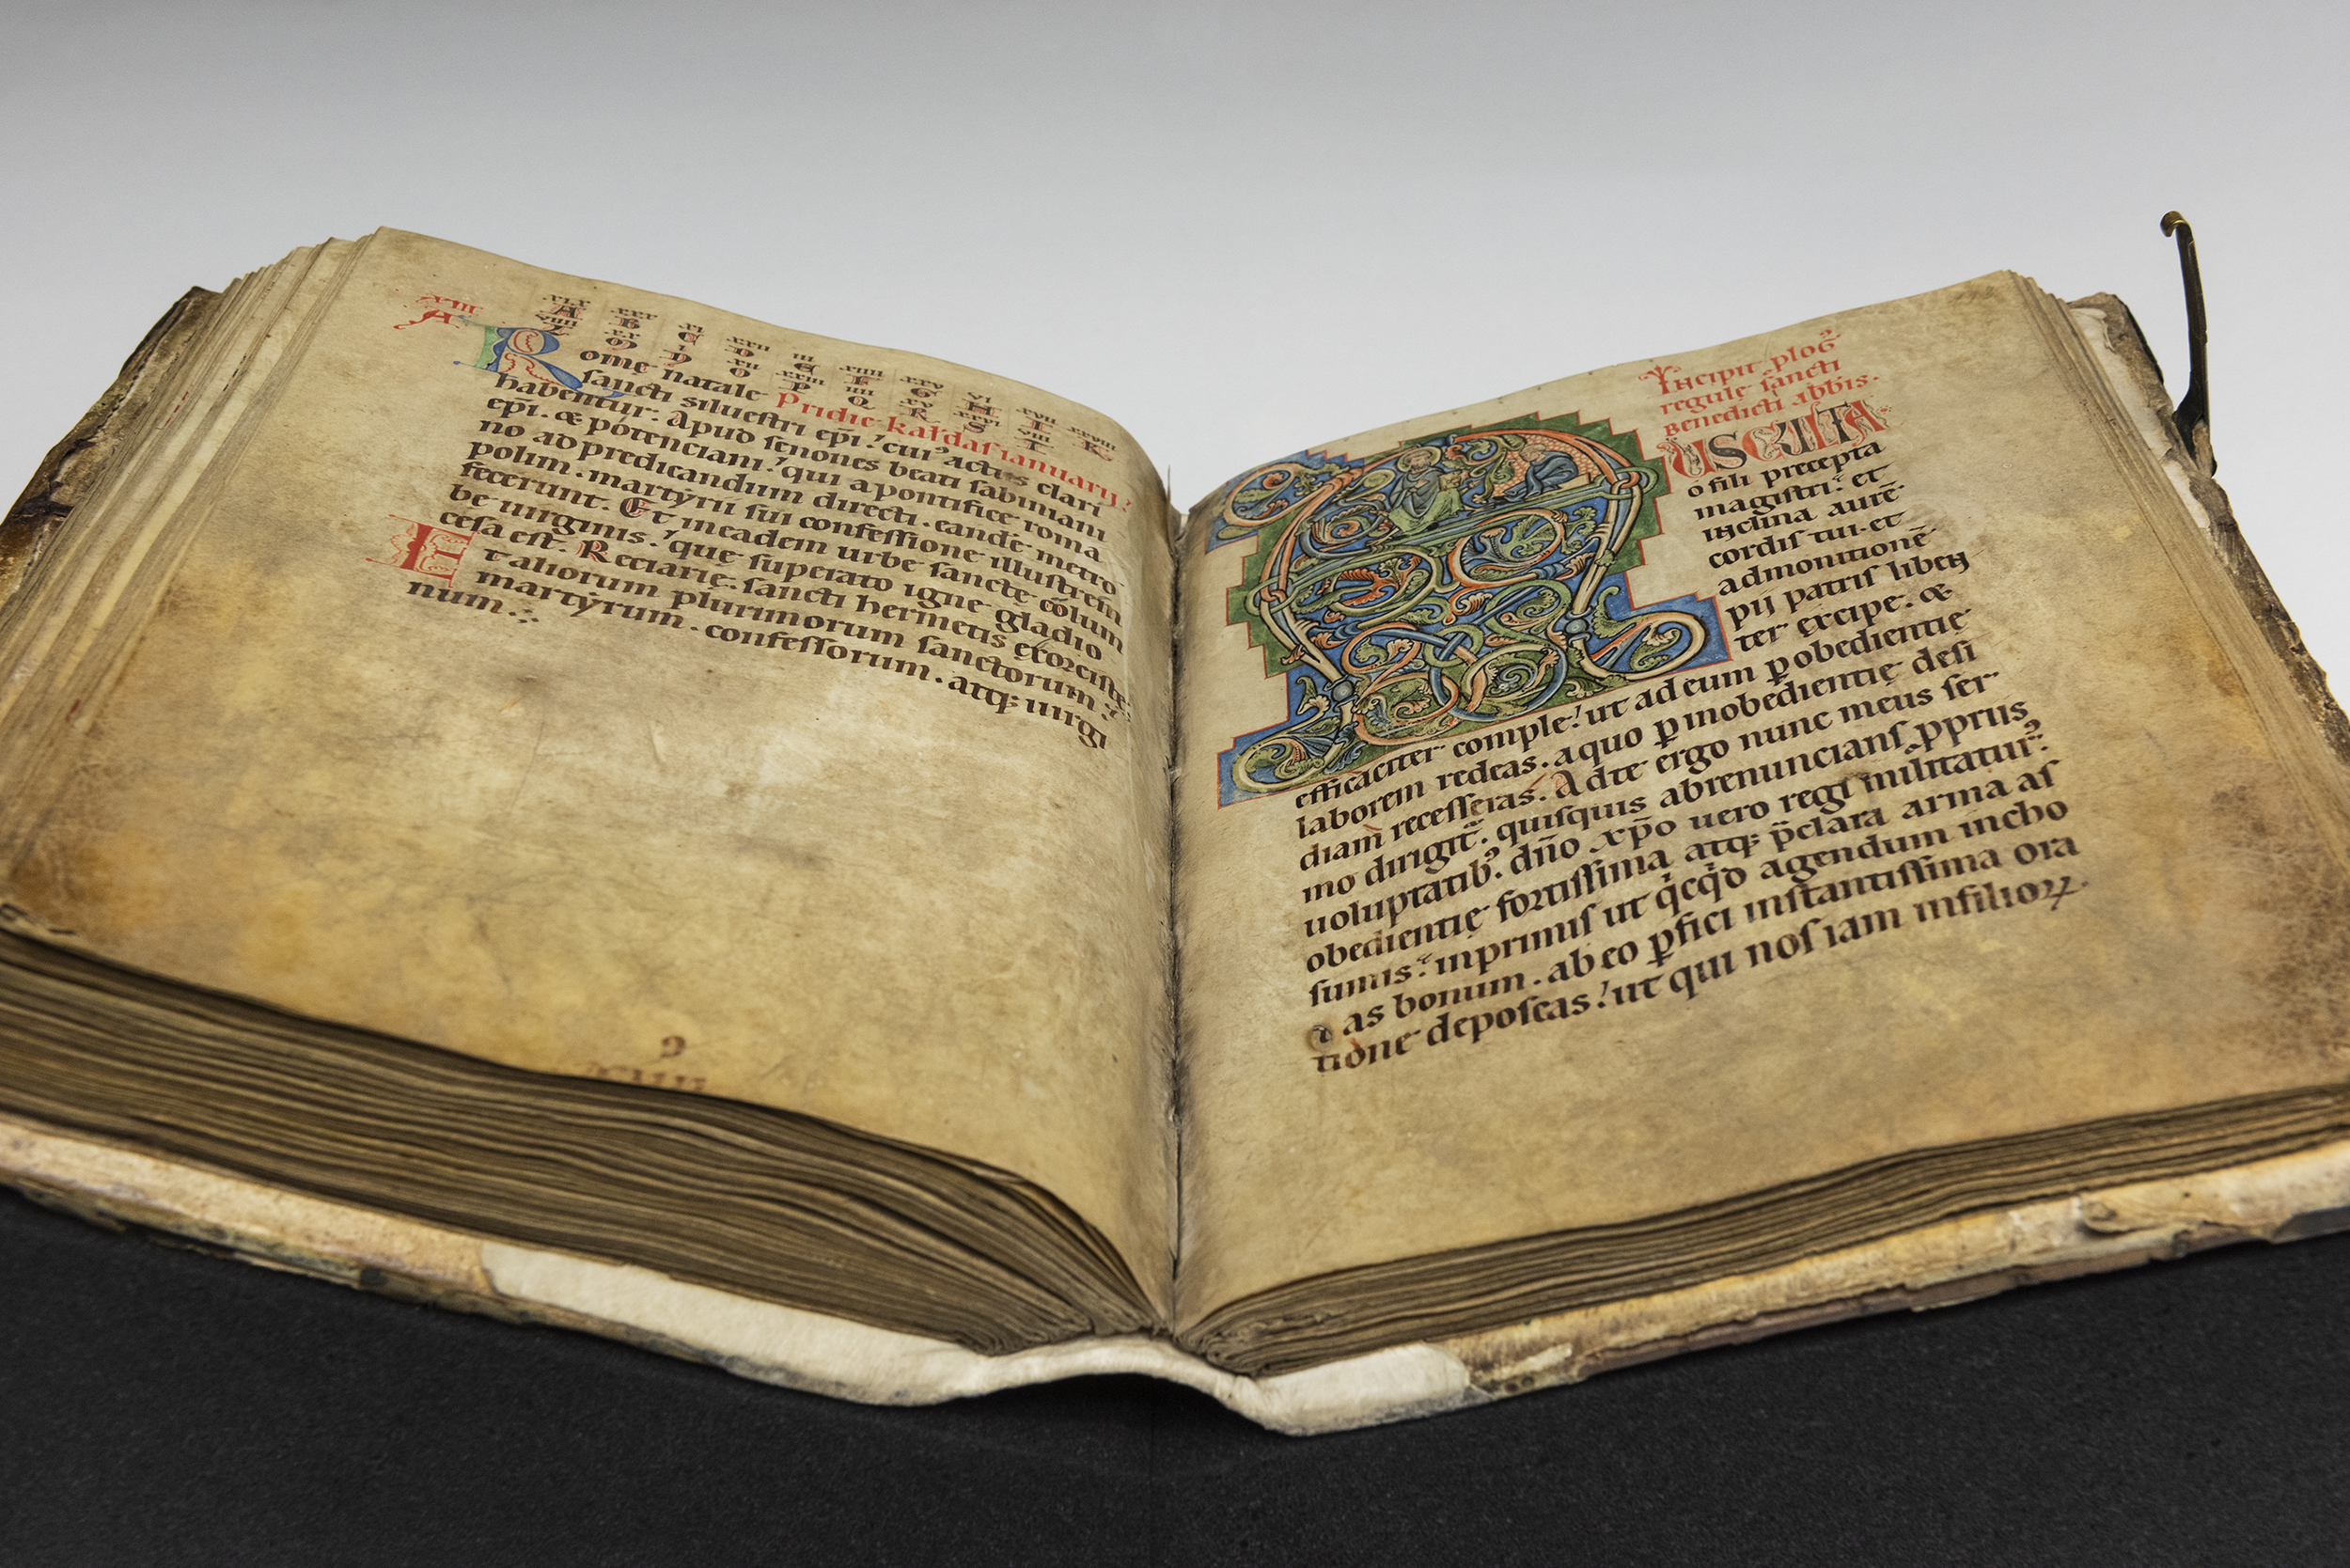 xiii xix xxx xi xxii iii xiiii xxv vi xvii xxviii
A A B C D E F G H I K
viiii xx i xii xxiii iiii xv xxvi viii
M N O P Q R S T
Rome natale Pridie kal'das ianuarij.
sancti siluestri epi. cui' actus clari
habentur. Apud senones beati sabiniani
epi. & potenciani. qui a pontifice roma
no ad predicandum directi. eandē metro
polim. martyrii sui confessione illustrem
fecerunt. Et in eadem urbe sanctę cōlum
be uirginis. quę superato igne gladio
cesa est. Reciarię. sancti hermetis exorcistę.
Et aliorum plurimorum sanctorum.
martyrum. confessorum. atq; uirgi
num.
Incipit plog'
regule sancti
Benedicti abbis.
AUSCULTA
o fili precepta
magistri. et
inclina aurē
cordis tui. et
admonitionē
pij patris liben
ter excipe. &
efficaciter comple. ut ad eum p obedientię
laborem redeas. a quo p inobedientię desi
diam recesseras. Ad te ergo nunc meus ser
mo dirigit'. quisquis abrenuncians ppriis
uoluptatib'. dño xpo uero regi militatur'.
obedientię fortissima atq; pclara arma as
sumis. inprimis ut qcqd agendum incho
as bonum. ab eo pfici instantissima ora
tione deposcas. ut qui nos iam in filioꝝ